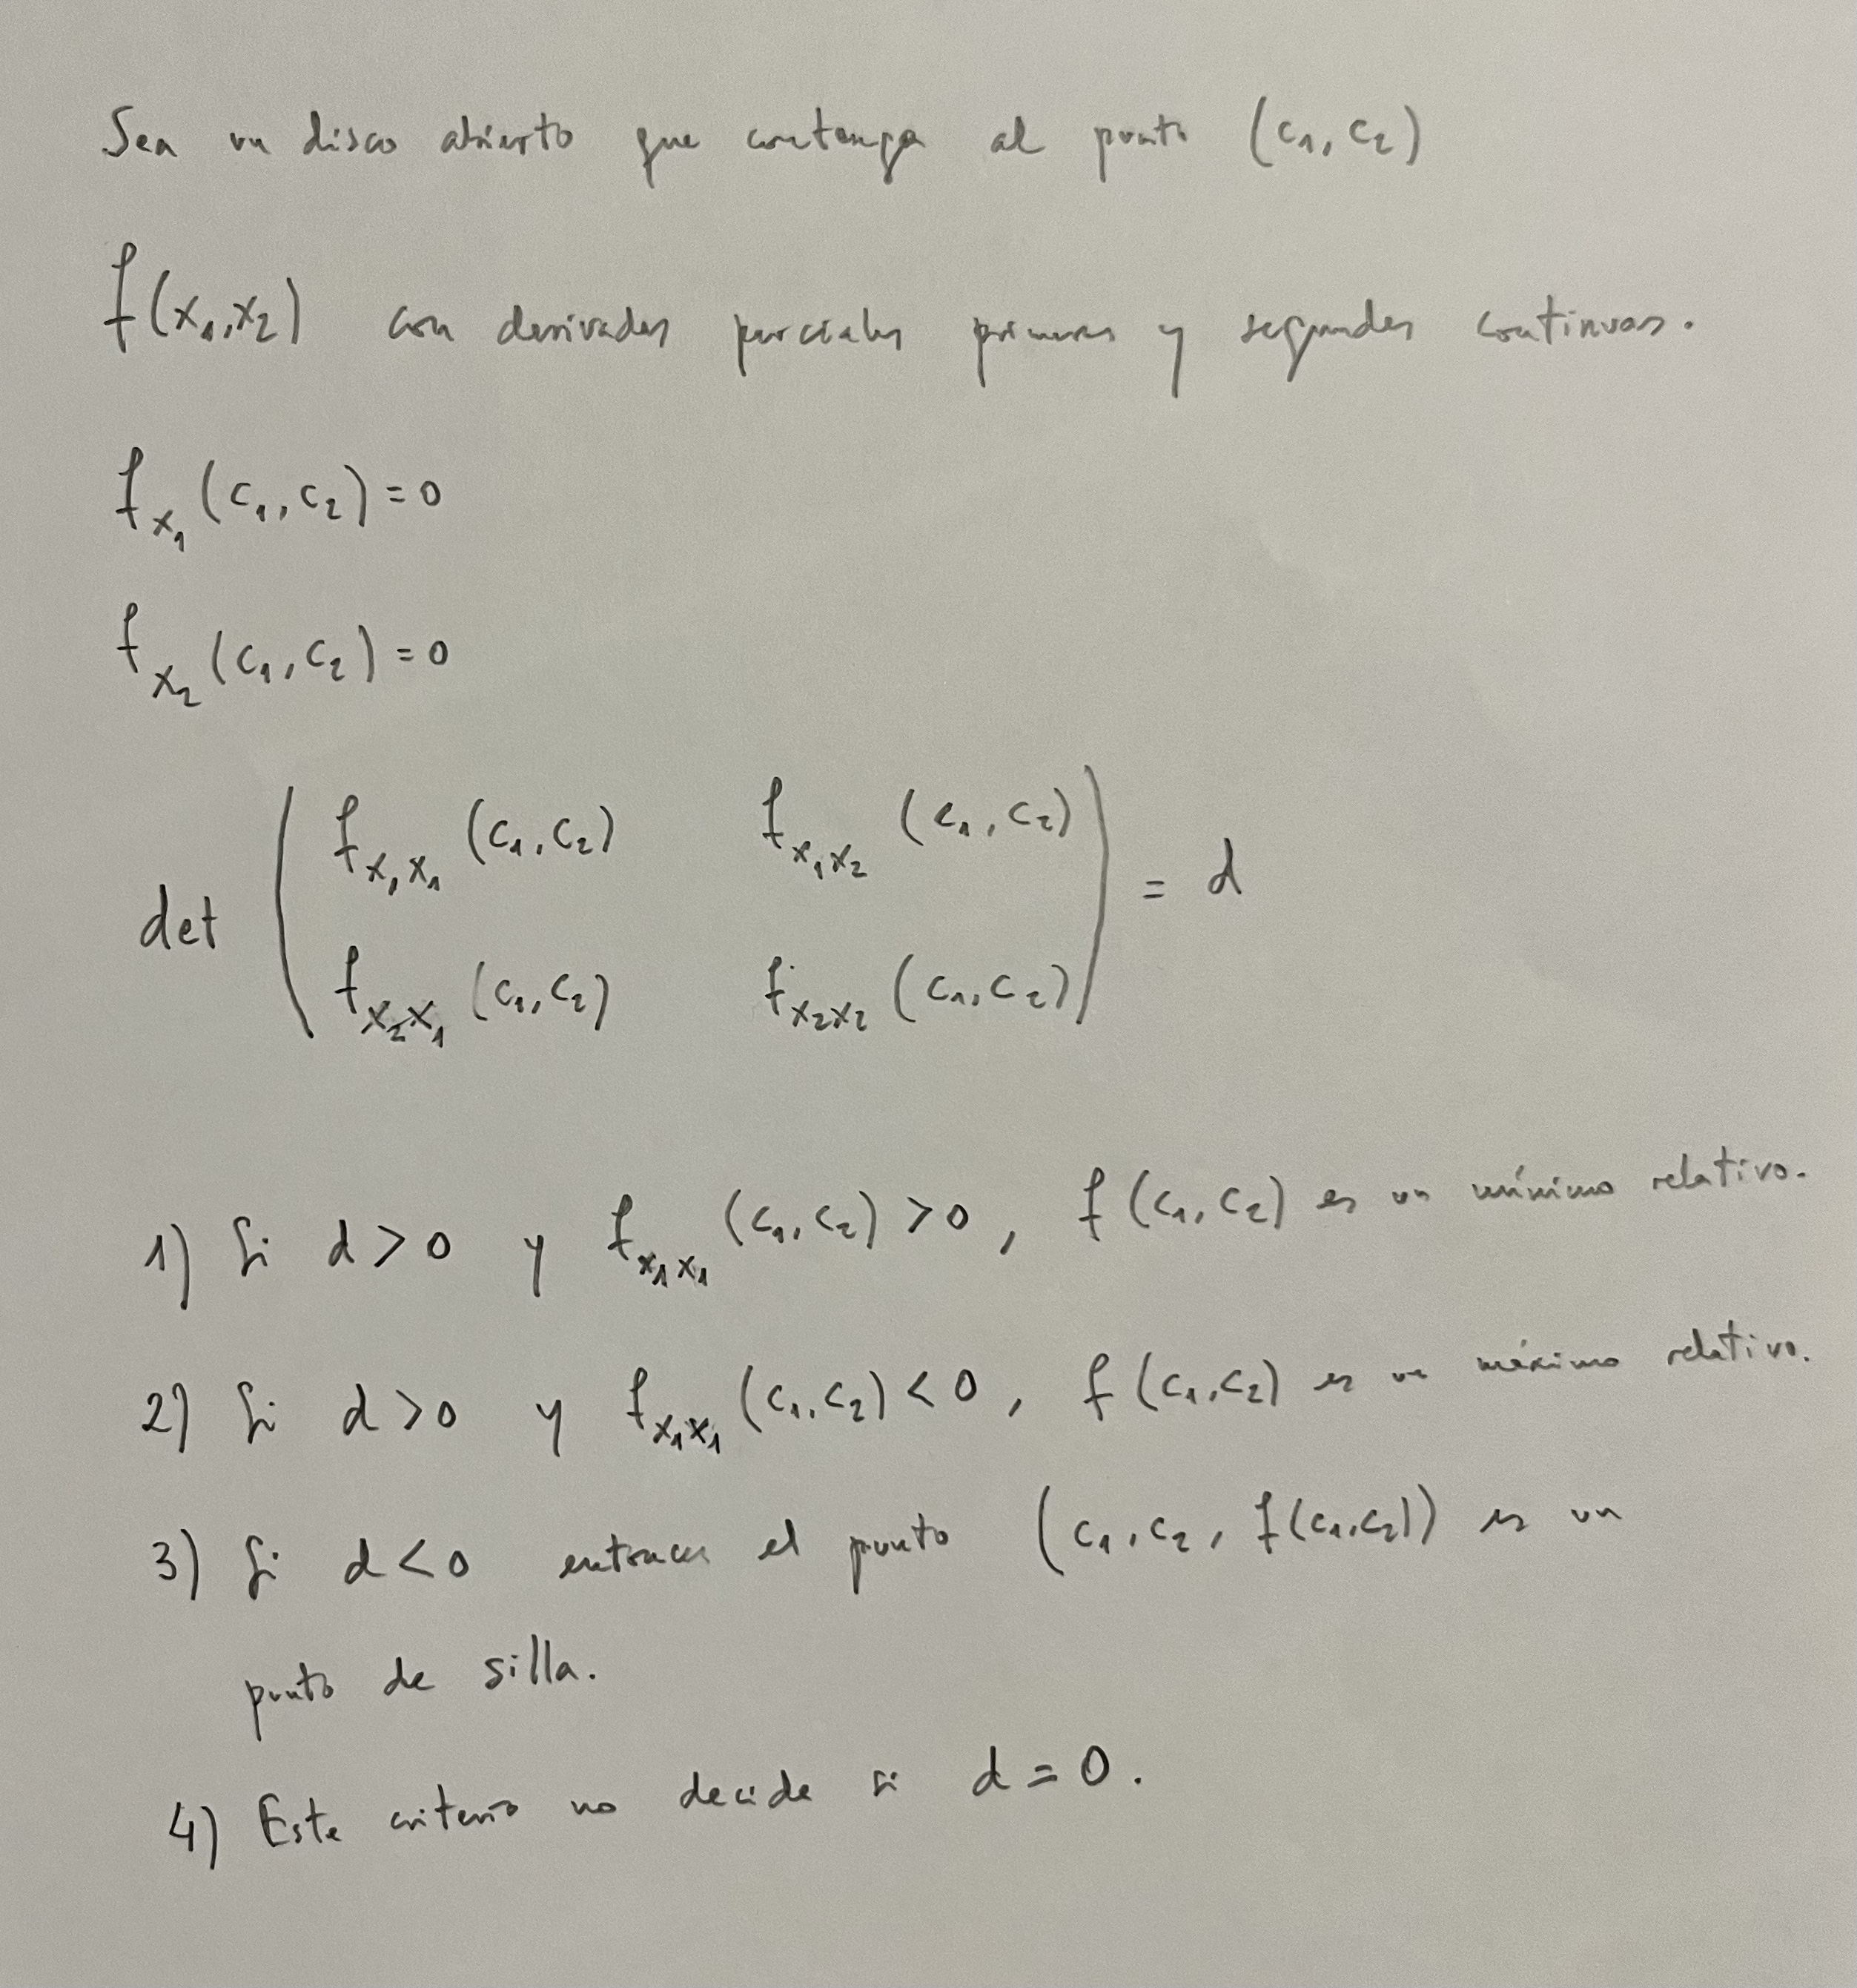 Sea un disco abierto que contenga al punto (c₁, c₂)
f(x₁,x₂) con derivadas parciales primeras y segundas continuas.
f_x₁ (c₁, c₂) = 0
f_x₂ (c₁, c₂) = 0
f_x₁x₁ (c₁, c₂) f_x₁x₂ (c₁, c₂)
det ( ) = d
f_x₂x₁ (c₁, c₂) f_x₂x₂ (c₁, c₂)
1) Si d > 0 y f_x₁x₁ (c₁, c₂) > 0, f (c₁, c₂) es un mínimo relativo.
2) Si d > 0 y f_x₁x₁ (c₁, c₂) < 0, f (c₁, c₂) es un máximo relativo.
3) Si d < 0 entonces el punto (c₁, c₂, f(c₁,c₂)) es un
punto de silla.
4) Este criterio no decide si d = 0.